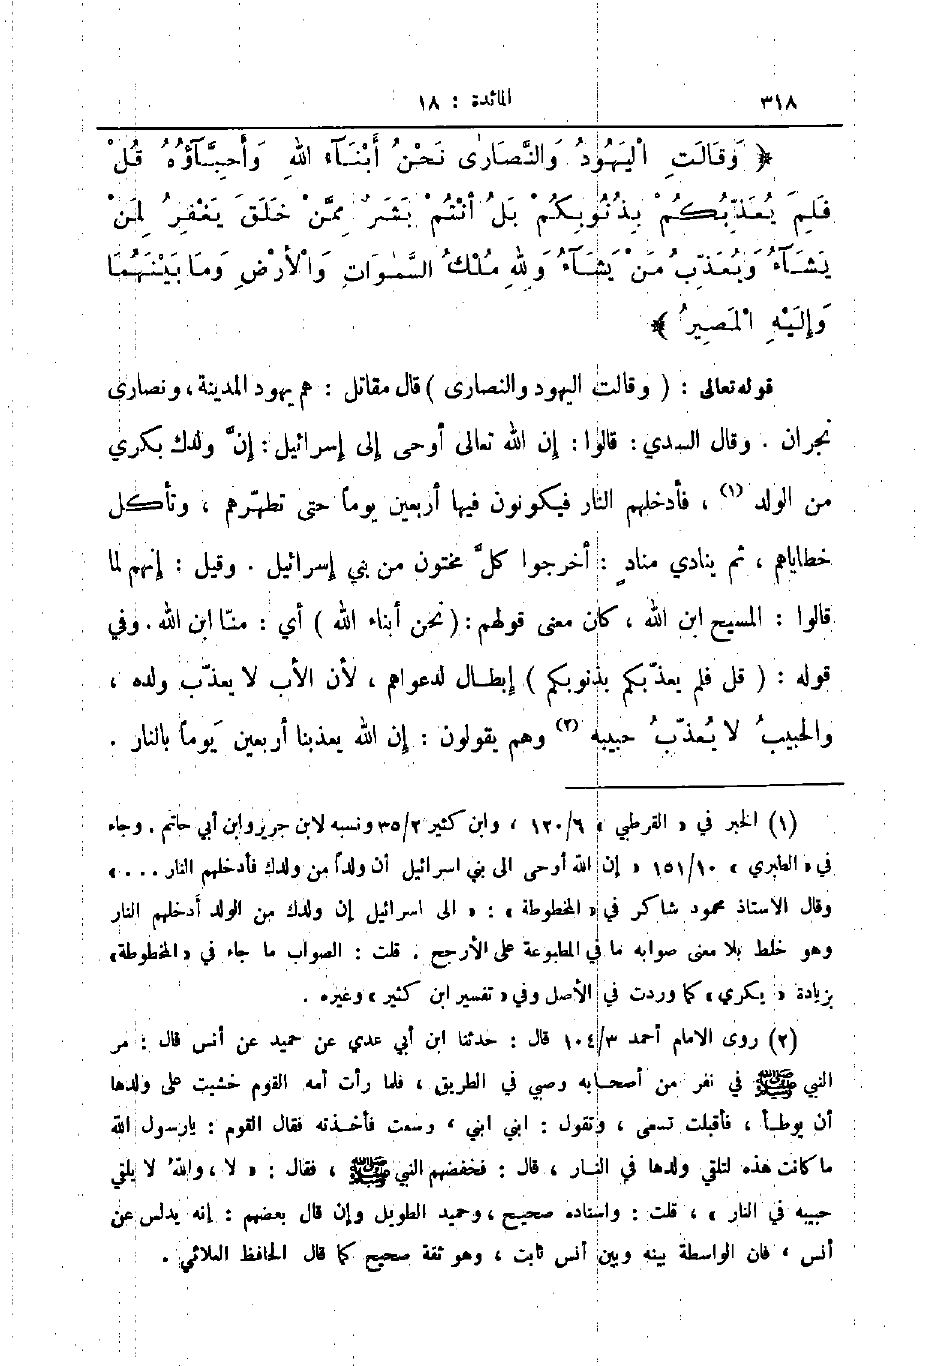 ٣١٨
المائدة : ١٨
﴿ وَقَالَتِ الْيَهُودُ وَالنَّصَارٰى نَحْنُ أَبْنَآءُ اللهِ وَأَحِبَّآؤُهُ قُلْ
فَلِمَ يُعَذِّبُكُمْ بِذُنُوبِكُمْ بَلْ أَنْتُمْ بَشَرٌ مِمَّنْ خَلَقَ يَغْفِرُ لِمَنْ
يَشَآءُ وَيُعَذِّبُ مَنْ يَشَآءُ وَلِلهِ مُلْكُ السَّمٰوَاتِ وَالْأَرْضِ وَمَا بَيْنَهُمَا
وَإِلَيْهِ الْمَصِيرُ ﴾
قوله تعالى : ( وقالت اليهود والنصارى ) قال مقاتل : هم يهود المدينة ، ونصارى
نجران . وقال السدي : قالوا : إن الله تعالى أوحى إلى إسرائيل : إنَّ ولدك بكري
من الولد (١) ، فأدخلهم النار فيكونون فيها أربعين يوماً حتى تطهّرهم ، وتأكل
خطاياهم ، ثم ينادي منادٍ : أخرجوا كلَّ مختون من بني إسرائيل . وقيل : إنهم لما
قالوا : المسيح ابن الله ، كان معنى قولهم : ( نحن أبناء الله ) أي : منّا ابن الله . وفي
قوله : ( قل فلم يعذّبكم بذنوبكم ) إبطال لدعواهم ، لأن الأب لا يعذّب ولده ،
والحبيبُ لا يُعذّبُ حبيبه (٢) وهم يقولون : إن الله يعذبنا أربعين يَوماً بالنار .
(١) الخبر في « القرطبي » ١٢٠/٦ ، وابن كثير ٣٥/٢ ونسبه لابن جرير وابن أبي حاتم . وجاء
في « الطبري » ١٥١/١٠ « إن الله أوحى الى بني اسرائيل أن ولداً من ولدك فأدخلهم النار ... »
وقال الاستاذ محمود شاكر في « المخطوطة » : « الى اسرائيل إن ولدك من الولد أدخلهم النار
وهو خلط بلا معنى صوابه ما في المطبوعة على الأرجح . قلت : الصواب ما جاء في « المخطوطة»
بزيادة « بكري » كما وردت في الأصل وفي « تفسير ابن كثير » وغيره .
(٢) روى الامام أحمد ١٠٤/٣ قال : حدثنا ابن أبي عدي عن حميد عن أنس قال : مر
النبي ﷺ في نفر من أصحابه وصبي في الطريق ، فلما رأت أمه القوم خشيت على ولدها
أن يوطأ ، فأقبلت تسعى ، وتقول : ابني ابني ، وسعت فأخذته فقال القوم : يارسول الله
ما كانت هذه لتلقي ولدها في النار ، قال : فخفضهم النبي ﷺ ، فقال : « لا ، واللهُ لا يلقي
حبيبه في النار » ، قلت : واسناده صحيح ، وحميد الطويل وإن قال بعضهم : إنه يدلس عن
أنس ، فان الواسطة بينه وبين أنس ثابت ، وهو ثقة صحيح كما قال الحافظ العلائي .